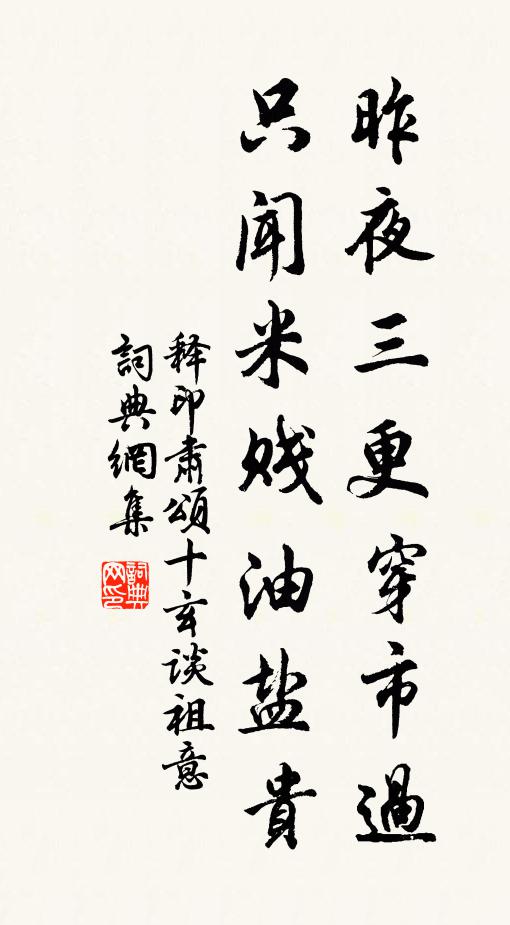 昨夜三更穿市過
只闻米贱油盐貴
释印肅頌十玄谈祖意
詞典網集
詞典网印